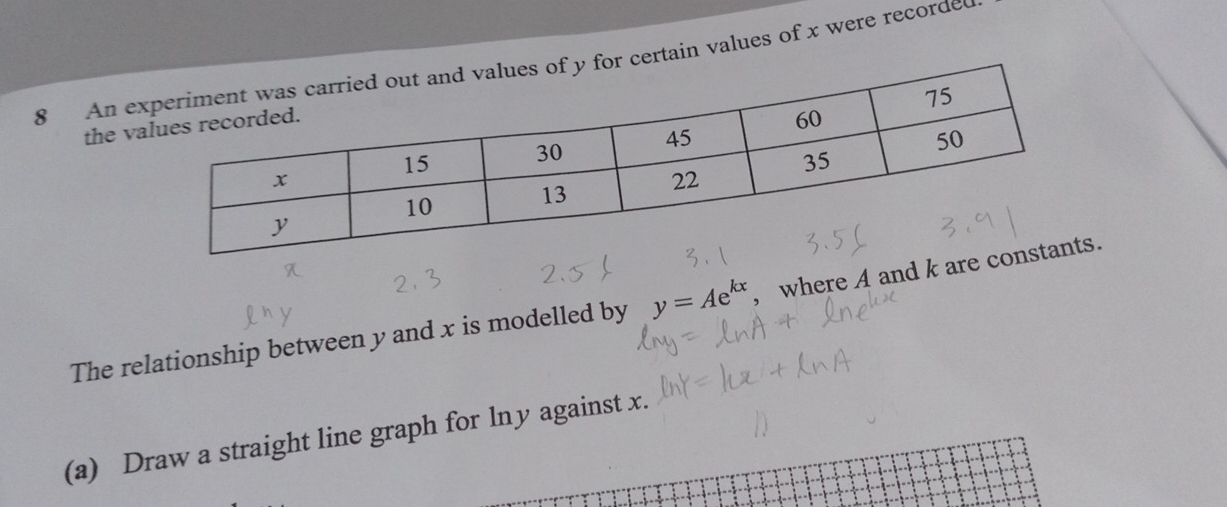 8 An experiment was carried out and values of y for certain values of x were recorded.
the values recorded.
x 15 30 45 60 75
y 10 13 22 35 50
x
ln y 2.3 2.56 3.1 3.56 3.91
The relationship between y and x is modelled by y = Ae^{kx}, where A and k are constants.
lny = lnA + lne^{kx}
(a) Draw a straight line graph for ln y against x.
lny = kx + lnA